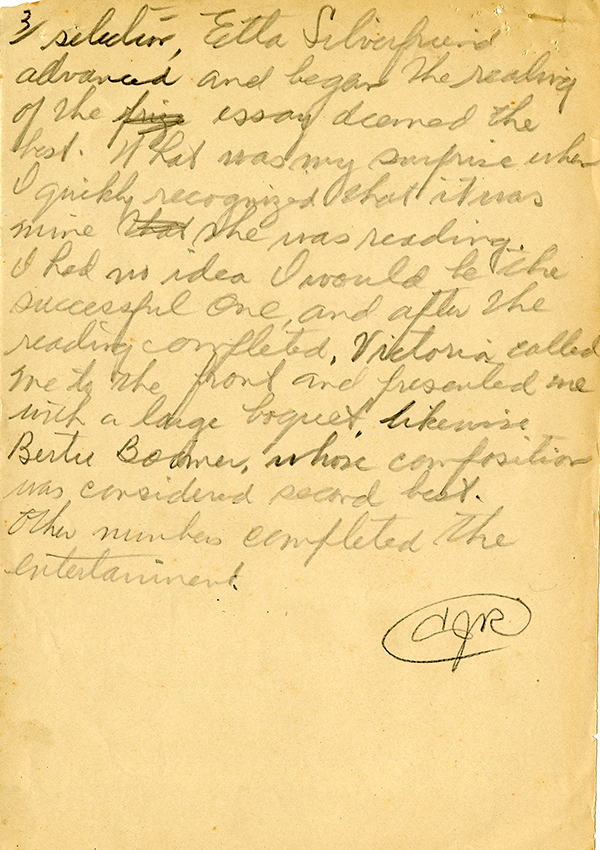 3/ selection, Etta Silverfriend
advanced and began the reading
of the priz essay deemed the
best. What was my surprise when
I quickly recognized that it was
mine that she was reading.
I had no idea I would be the
successful one, and after the
reading completed, Victoria called
me to the front and presented me
with a large boquet, likewise
Bertie Boemer, whose composition
was considered second best.
Other numbers completed the
entertainment.